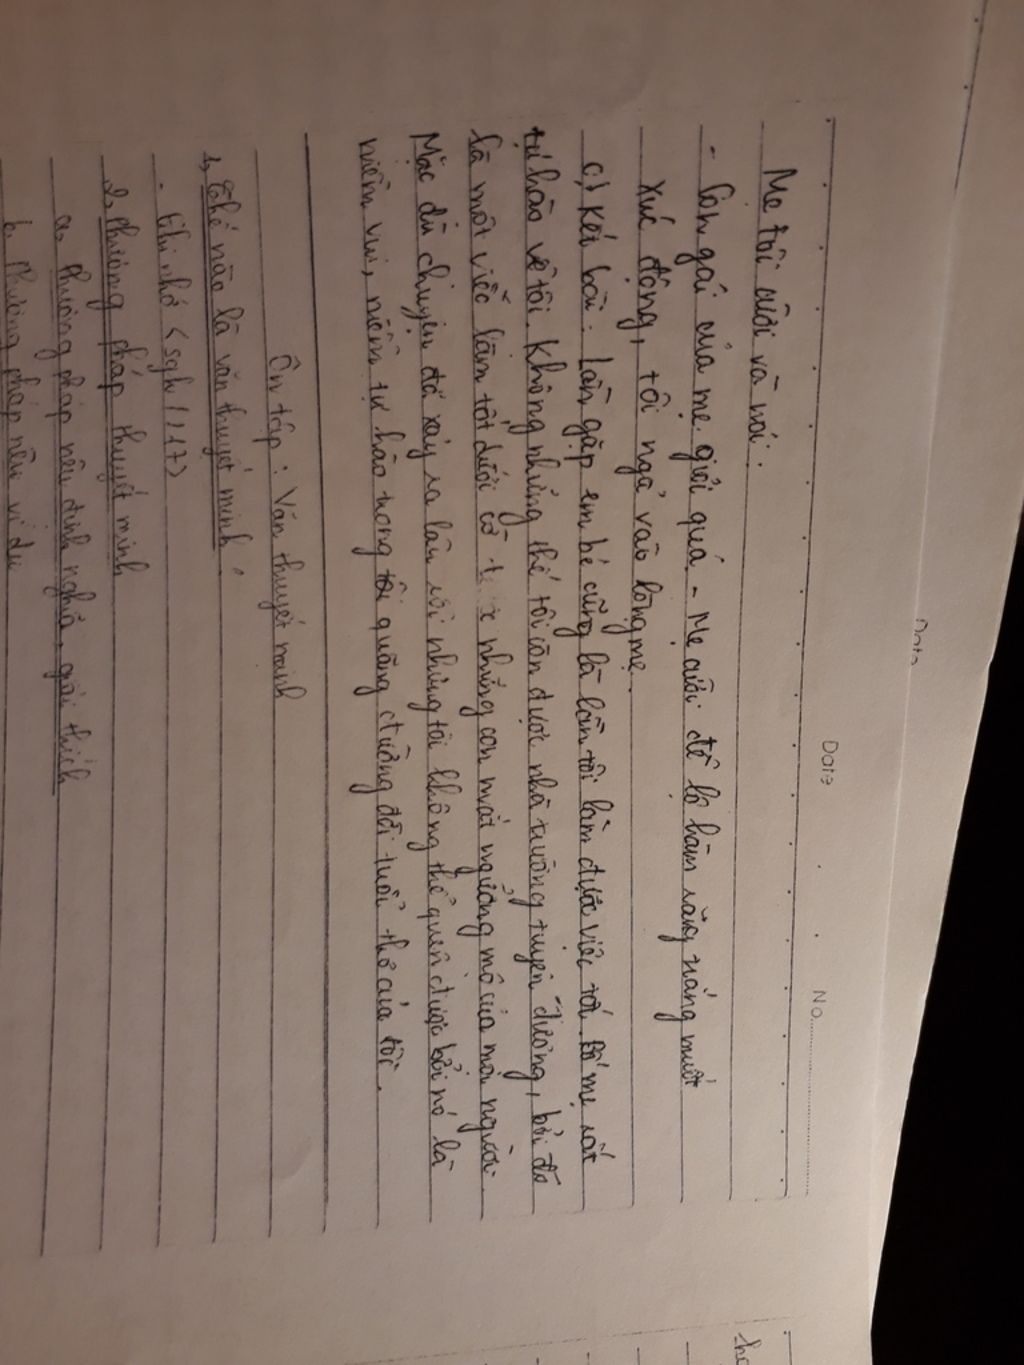 Date
Date
No
Mẹ tôi cười và nói:
- Con gái của mẹ giỏi quá - Mẹ cười để lộ hàm răng trắng muốt
Xúc động, tôi ngả vào lòng mẹ.
c) Kết bài: Lần gặp em bé cũng là lần tôi làm được việc tốt. Bố mẹ rất
tự hào về tôi. Không những thế tôi còn được nhà trường tuyên dương, bởi đó
là một việc làm tốt dưới cờ những con mắt ngưỡng mộ của mọi người.
Mặc dù chuyện đã xảy ra lâu rồi nhưng tôi không thể quên được bởi nó là
niềm vui, niềm tự hào trong tôi quãng đường đời tuổi thơ của tôi.
Ôn tập: Văn thuyết minh
1, Thế nào là văn thuyết minh.
- Ghi nhớ < sgk / 117>
2, Phương pháp thuyết minh
a, Phương pháp nêu định nghĩa, giải thích
b, Phương pháp nêu ví dụ